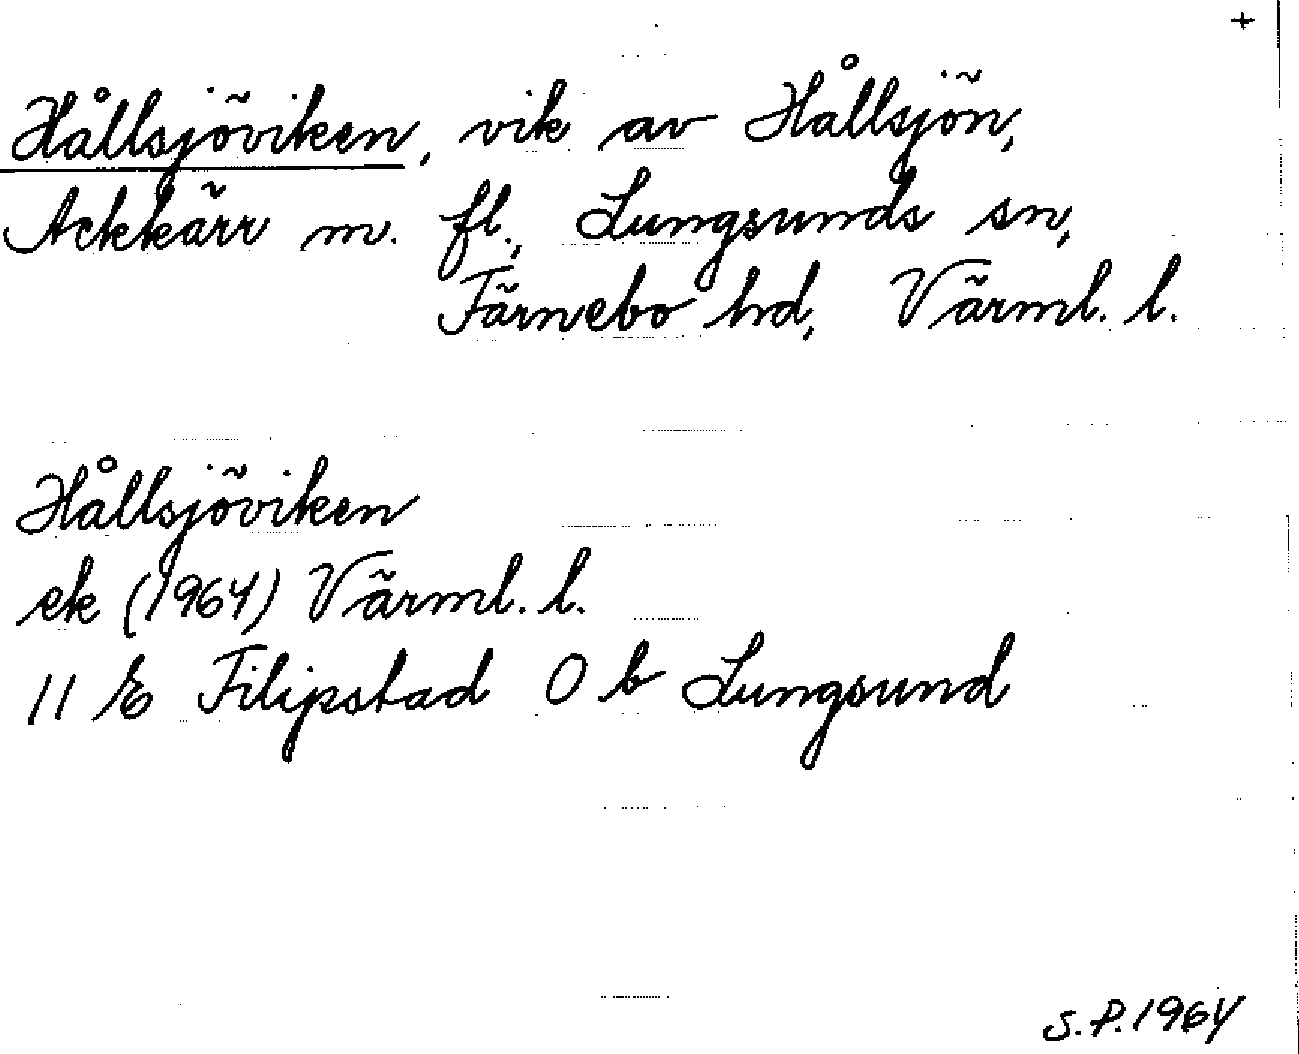 +
Hållsjöviken, vik av Hållsjön,
Ackkärr m. fl., Lungsunds sn,
Färnebo hd, Värml. l.
Hållsjöviken
ek (1964) Värml. l.
11 E Filipstad 0 b Lungsund
S.P. 1964